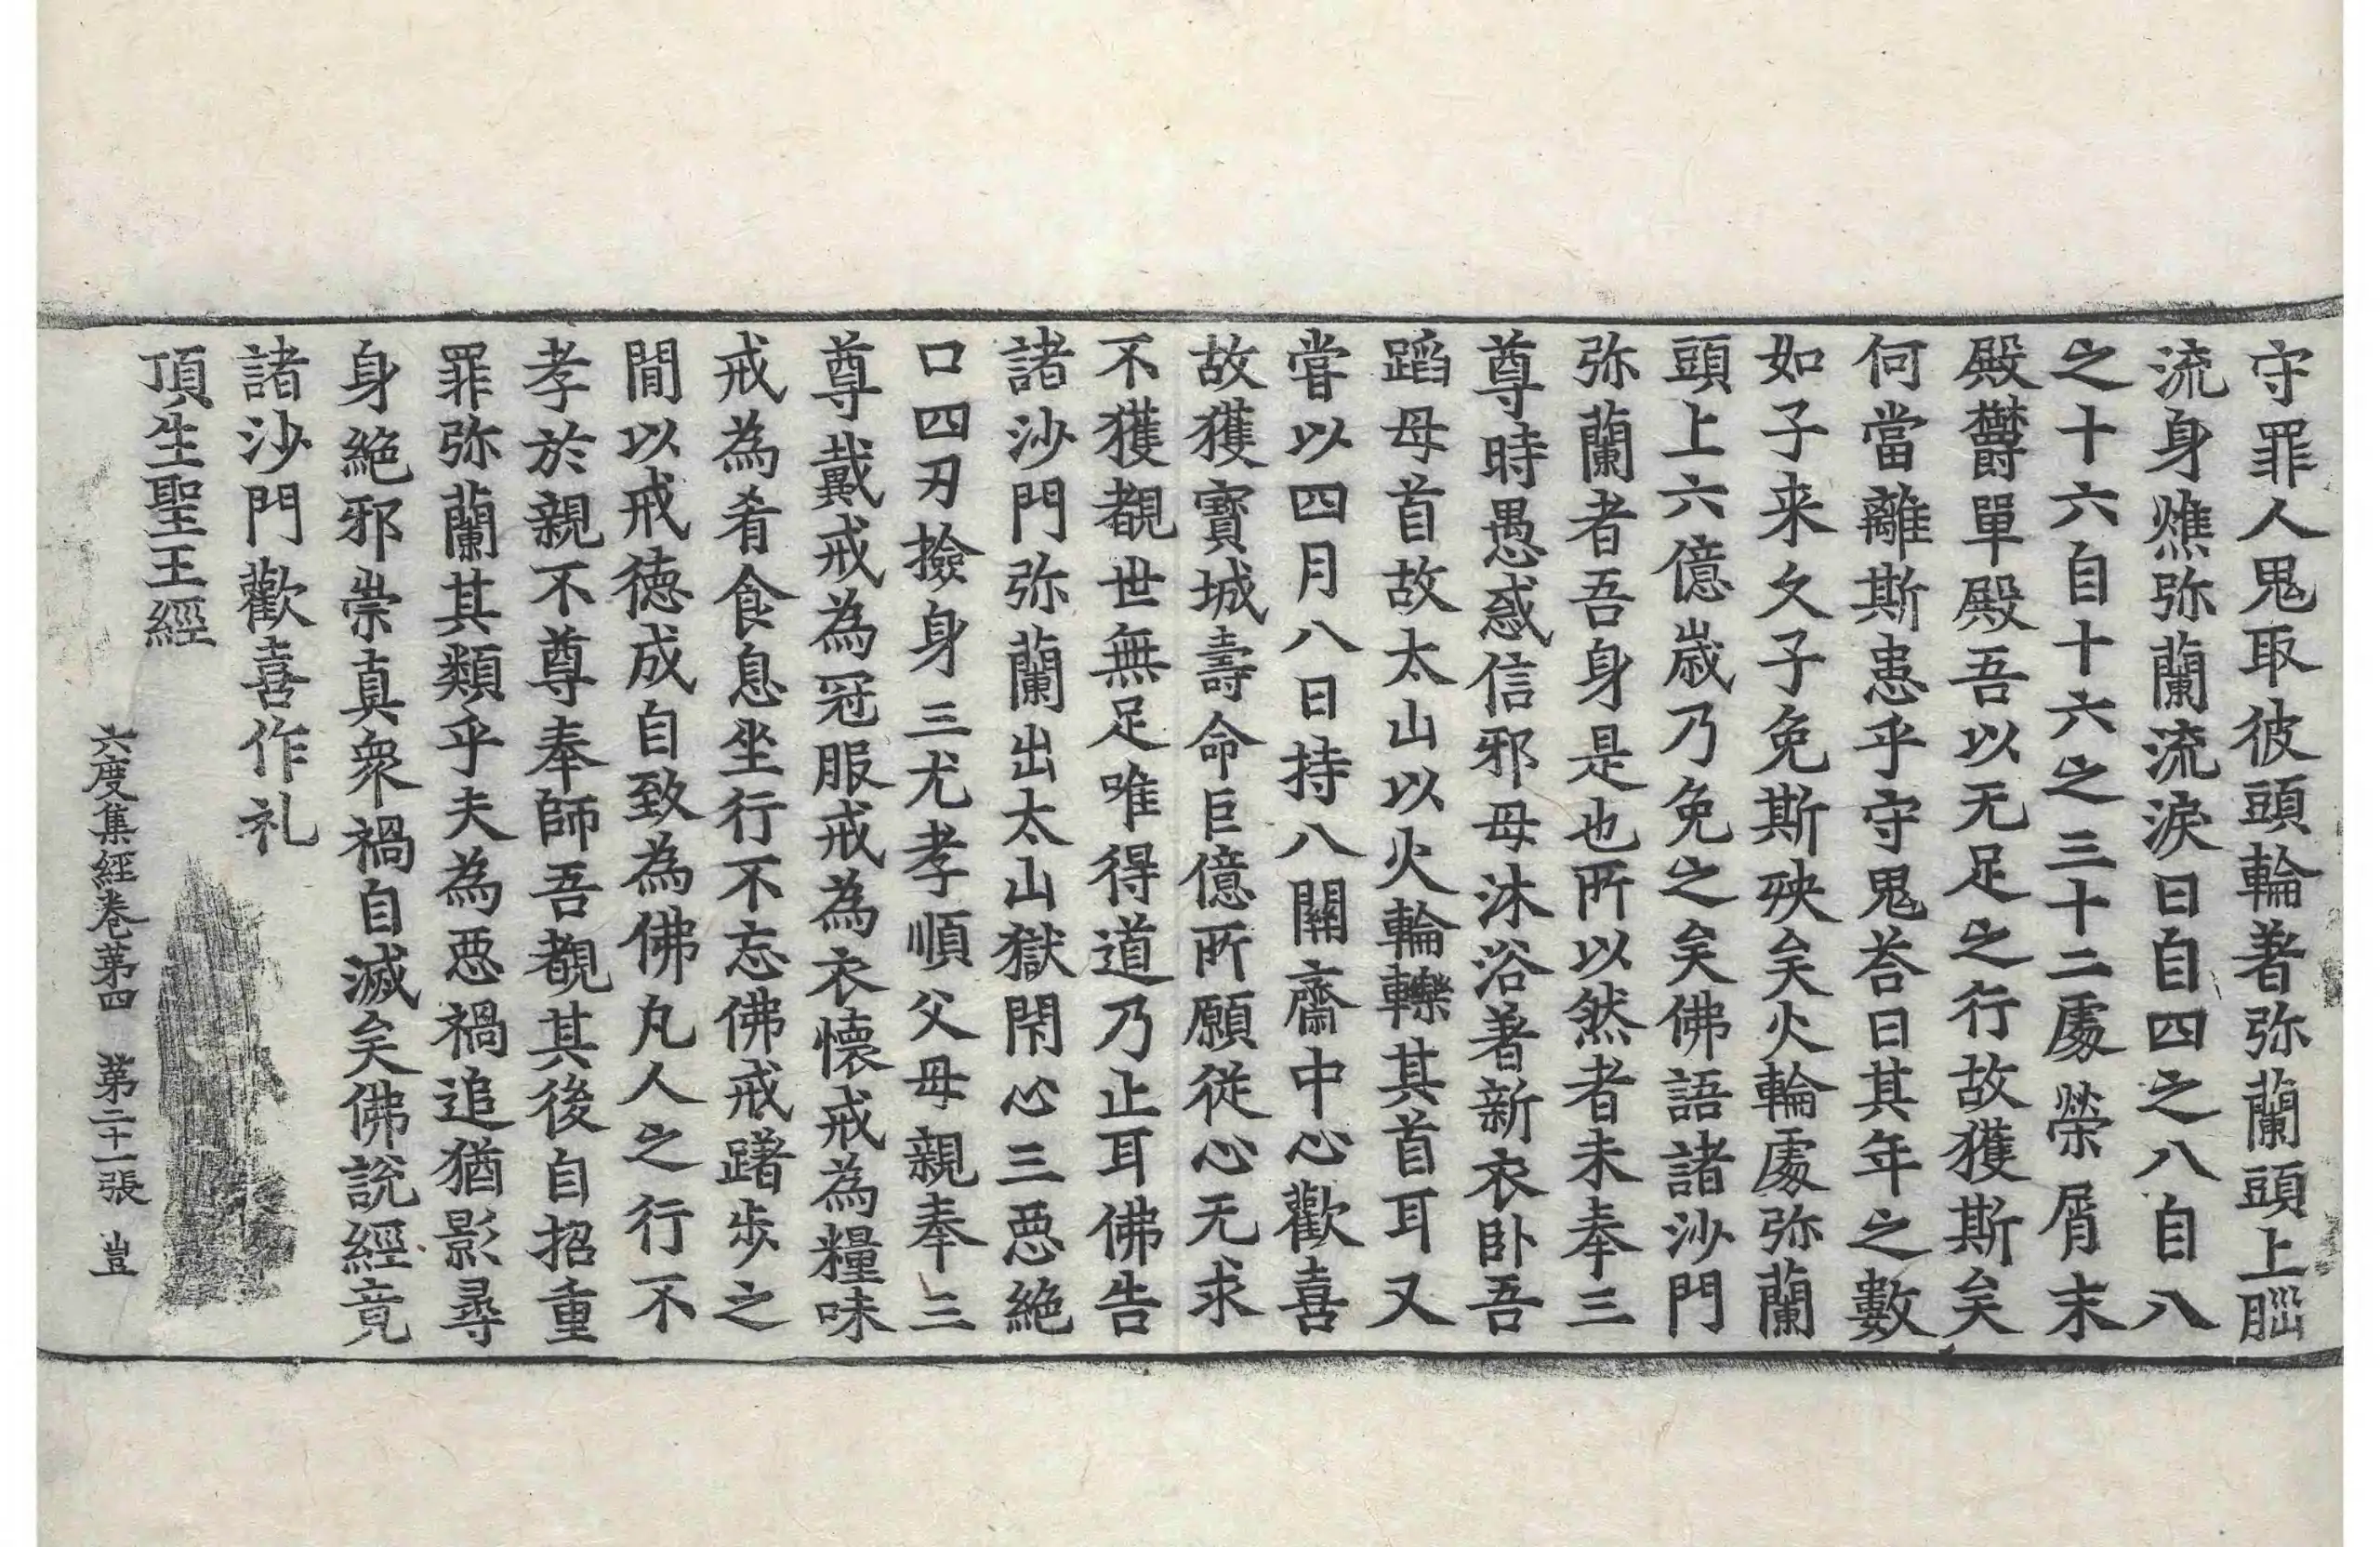 守罪人鬼取彼頭輪著弥蘭頭上𦛁
流身燋弥蘭流淚曰自四之八自八
之十六自十六之三十二處榮屑末
殿欝單殿吾以无足之行故獲斯矣
何當離斯患乎守鬼荅曰其年之數
如子来久子免斯殃矣火輪處弥蘭
頭上六億歲乃免之矣佛語諸沙門
弥蘭者吾身是也所以然者未奉三
尊時愚惑信邪母沐浴著新衣卧吾
蹈母首故太山以火輪轢其首耳又
甞以四月八日持八關齋中心歡喜
故獲寶城壽命巨億所願從心无求
不獲覩世無足唯得道乃止耳佛告
諸沙門弥蘭出太山獄閇心三惡絕
口四刃撿身三尤孝順父母親奉三
尊戴戒為冠服戒為衣懷戒為糧味
戒為肴食息坐行不忘佛戒躇步之
間以戒德成自致為佛凡人之行不
孝於親不尊奉師吾覩其後自招重
罪弥蘭其類乎夫為惡禍追猶影尋
身絕邪崇真衆禍自滅矣佛說經竟
諸沙門歡喜作礼
頂生聖王經
六度集經卷第四 第二十一張 豈